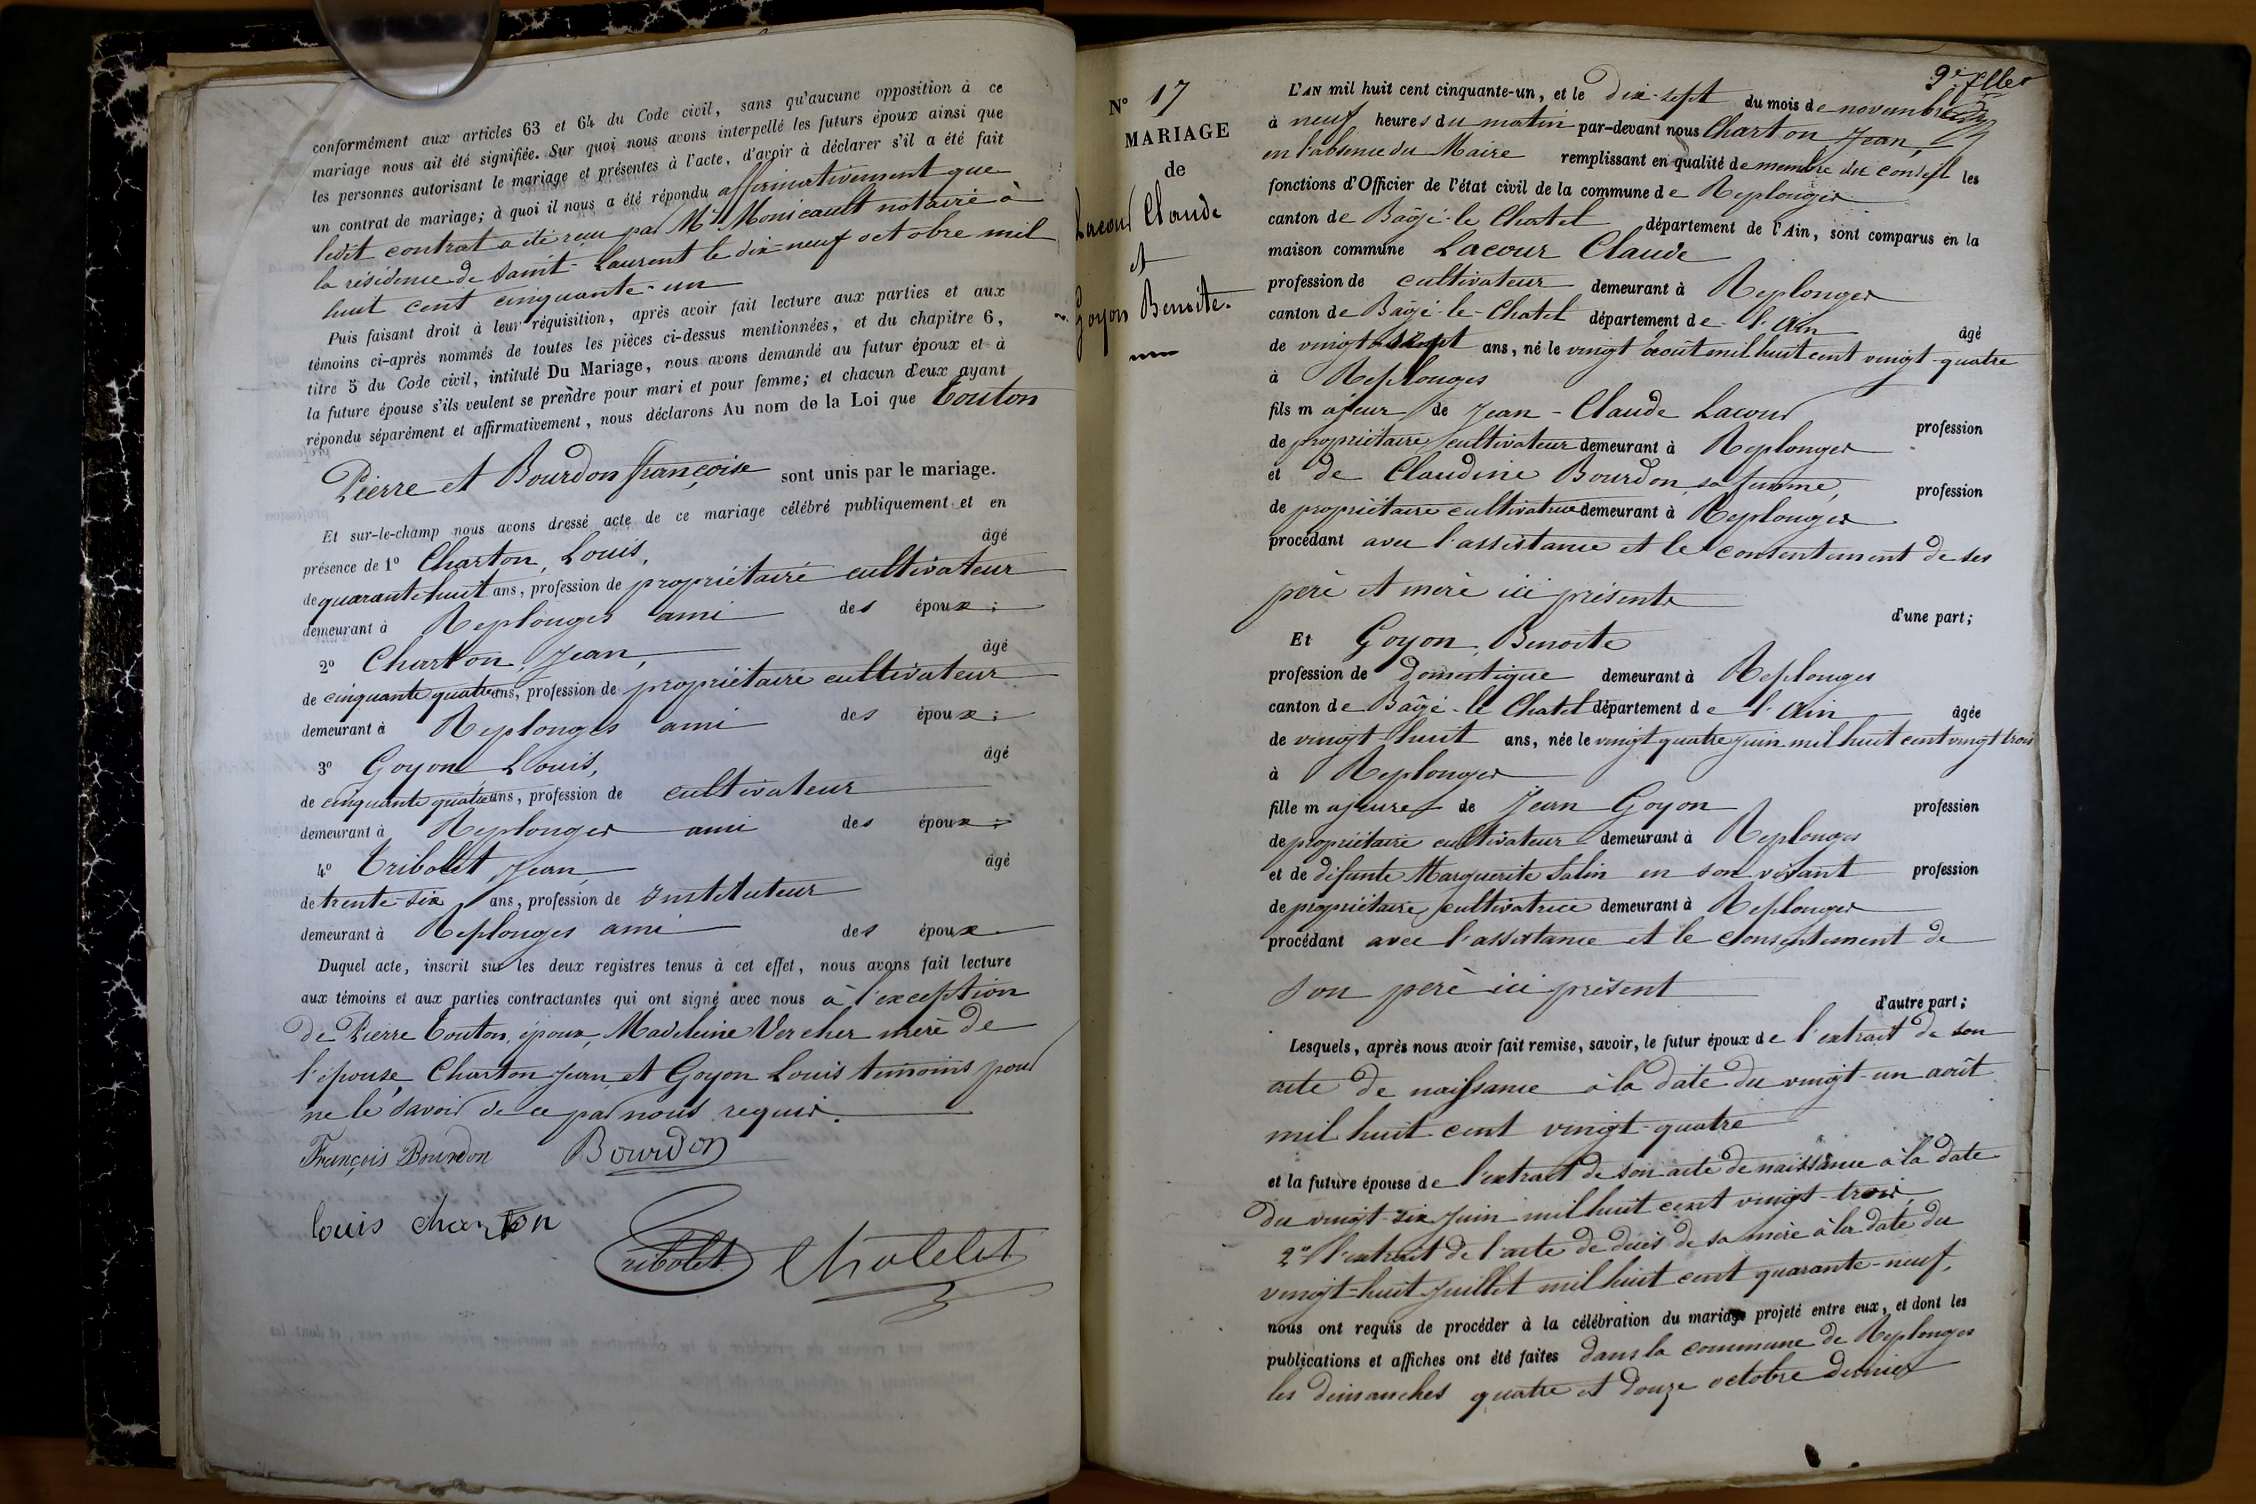 conformément aux articles 63 et 64 du Code civil, sans qu'aucune opposition à ce
mariage nous ait été signifiée. Sur quoi nous avons interpellé les futurs époux ainsi que
les personnes autorisant le mariage et présentes à l'acte, d'avoir à déclarer s'il a été fait
un contrat de mariage; à quoi il nous a été répondu affirmativement que
ledit contrat a été reçu par Me Monicault notaire à
la résidence de Saint-Laurent le dix-neuf octobre mil
huit cent cinquante-un
Puis faisant droit à leur réquisition, après avoir fait lecture aux parties et aux
témoins ci-après nommés de toutes les pièces ci-dessus mentionnées, et du chapitre 6,
titre 5 du Code civil, intitulé Du Mariage, nous avons demandé au futur époux et à
la future épouse s'ils veulent se prendre pour mari et pour femme; et chacun d'eux ayant
répondu séparément et affirmativement, nous déclarons Au nom de la Loi que Touton
Pierre et Bourdon françoise sont unis par le mariage.
Et sur-le-champ nous avons dressé acte de ce mariage célébré publiquement et en
présence de 1° Charton, Louis, âgé
de quarante huit ans, profession de propriétaire cultivateur
demeurant à Replonges ami des époux;
2° Charton, Jean, âgé
de cinquante quatre ans, profession de propriétaire cultivateur
demeurant à Replonges ami des époux;
3° Goyon Louis, âgé
de cinquante quatre ans, profession de cultivateur
demeurant à Replonges ami des époux;
4° Tribolet Jean, âgé
de trente-six ans, profession de Instituteur
demeurant à Replonges ami des époux
Duquel acte, inscrit sur les deux registres tenus à cet effet, nous avons fait lecture
aux témoins et aux parties contractantes qui ont signé avec nous à l'exception
de Pierre Touton, époux, Madeleine Vercher mère de
l'épouse, Charton Jean, et Goyon Louis témoins pour
ne le savoir de ce par nous requis.
François Bourdon Bourdon
louis charton
Tribolet Chatelet
9e flle
N° 17
MARIAGE
de
Lacour Claude
et
Goyon Benoite.
L'AN mil huit cent cinquante-un, et le dix-sept du mois de novembre
à neuf heures du matin par-devant nous Charton Jean,
en l'absence du Maire remplissant en qualité de membre du conseil les
fonctions d'Officier de l'état civil de la commune de Replonges
canton de Bâgé-le-Chatel département de l'Ain, sont comparus en la
maison commune Lacour Claude
profession de cultivateur demeurant à Replonges
canton de Bâgé-le-Chatel département de l'Ain âgé
de vingt-sept ans, né le vingt août mil huit cent vingt-quatre
à Replonges
fils majeur de Jean-Claude Lacour profession
de propriétaire cultivateur demeurant à Replonges
et de Claudine Bourdon, sa femme, profession
de propriétaire cultivatrice demeurant à Replonges
procédant avec l'assistance et le consentement de ses
père et mère ici présents
d'une part;
Et Goyon, Benoite
profession de domestique demeurant à Replonges
canton de Bâgé-le Chatel département de l'Ain âgée
de vingt-huit ans, née le vingt quatre juin mil huit cent vingt trois
à Replonges
fille majeure de Jean Goyon profession
de propriétaire cultivateur demeurant à Replonges
et de défunte Marguerite Salin en son vivant profession
de propriétaire cultivatrice demeurant à Replonges
procédant avec l'assistance et le consentement de
son père ici présent
d'autre part;
Lesquels, après nous avoir fait remise, savoir, le futur époux de l'extrait de son
acte de naissance à la date du vingt-un août
mil huit cent vingt-quatre
et la future épouse de l'extrait de son acte de naissance à la date
du vingt-six juin mil huit cent vingt-trois,
2° l'extrait de l'acte de décès de sa mère à la date du
vingt-huit juillet mil huit cent quarante-neuf,
nous ont requis de procéder à la célébration du mariage projeté entre eux, et dont les
publications et affiches ont été faites dans la commune de Replonges
les dimanches quatre et douze octobre dernier